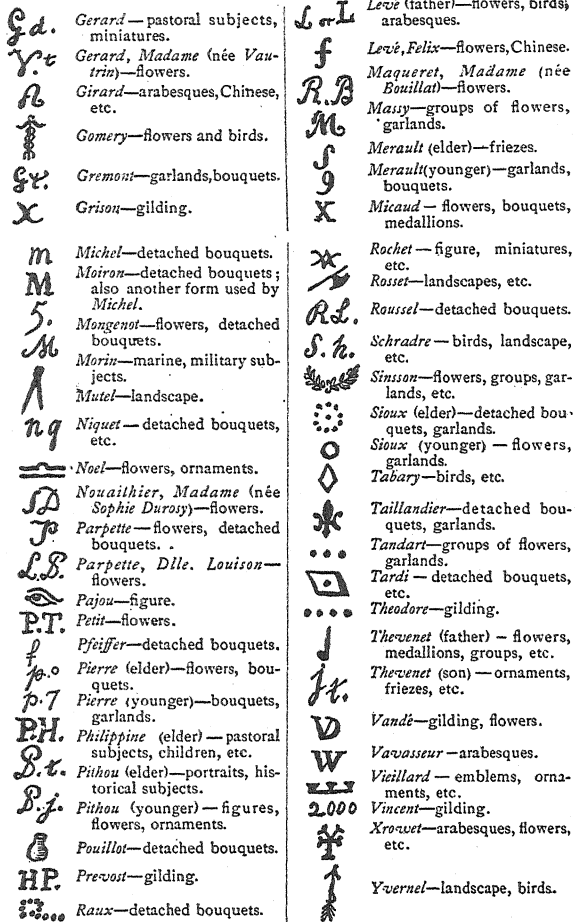 Gd. Gerard—pastoral subjects,
miniatures.
V.t Gerard, Madame (née Vau-
trin)—flowers.
Girard—arabesques, Chinese,
etc.
Gomery—flowers and birds.
Gt. Gremont—garlands, bouquets.
X Grison—gilding.
m Michel—detached bouquets.
M Moiron—detached bouquets;
also another form used by
Michel.
5. Mongenot—flowers, detached
bouquets.
M Morin—marine, military sub-
jects.
Mutel—landscape.
nq Niquet—detached bouquets,
etc.
Noel—flowers, ornaments.
SD Nouaithier, Madame (née
Sophie Durosy)—flowers.
P Parpette—flowers, detached
bouquets. .
L.B. Parpette, Dlle. Louison—
flowers.
Pajou—figure.
P.T. Petit—flowers.
f Pfeiffer—detached bouquets.
p.o Pierre (elder)—flowers, bou-
quets.
p.7 Pierre (younger)—bouquets,
garlands.
P.H. Philippine (elder)—pastoral
subjects, children, etc.
P.t. Pithou (elder)—portraits, his-
torical subjects.
P.j. Pithou (younger)—figures,
flowers, ornaments.
Pouillot—detached bouquets.
HP. Prevost—gilding.
Raux—detached bouquets.
L or L Levé (father)—flowers, birds,
arabesques.
f Levé, Felix—flowers, Chinese.
R.B Maqueret, Madame (née
Bouillat)—flowers.
M Massy—groups of flowers,
garlands.
S Merault (elder)—friezes.
9 Merault (younger)—garlands,
bouquets.
X Micaud—flowers, bouquets,
medallions.
Rochet—figure, miniatures,
etc.
Rosset—landscapes, etc.
RL. Roussel—detached bouquets.
S.h. Schradre—birds, landscape,
etc.
Sinsson—flowers, groups, gar-
lands, etc.
Sioux (elder)—detached bou-
quets, garlands.
Sioux (younger)—flowers,
garlands.
Tabary—birds, etc.
Taillandier—detached bou-
quets, garlands.
Tandart—groups of flowers,
garlands.
Tardi—detached bouquets,
etc.
Theodore—gilding.
Thevenet (father)—flowers,
medallions, groups, etc.
jt. Thevenet (son)—ornaments,
friezes, etc.
VD Vandé—gilding, flowers.
W Vavasseur—arabesques.
Vieillard—emblems, orna-
ments, etc.
2.000 Vincent—gilding.
Xrowet—arabesques, flowers,
etc.
Yvernel—landscape, birds.